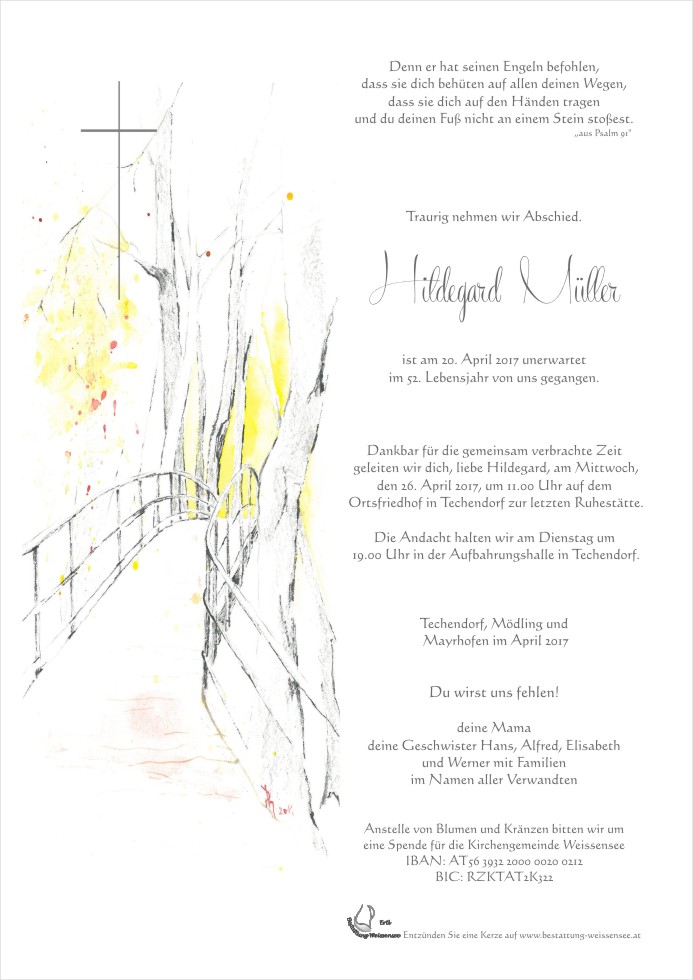 Denn er hat seinen Engeln befohlen,
dass sie dich behüten auf allen deinen Wegen,
dass sie dich auf den Händen tragen
und du deinen Fuß nicht an einem Stein stoßest.
„aus Psalm 91"
Traurig nehmen wir Abschied.
Hildegard Müller
ist am 20. April 2017 unerwartet
im 52. Lebensjahr von uns gegangen.
Dankbar für die gemeinsam verbrachte Zeit
geleiten wir dich, liebe Hildegard, am Mittwoch,
den 26. April 2017, um 11.00 Uhr auf dem
Ortsfriedhof in Techendorf zur letzten Ruhestätte.
Die Andacht halten wir am Dienstag um
19.00 Uhr in der Aufbahrungshalle in Techendorf.
Techendorf, Mödling und
Mayrhofen im April 2017
Du wirst uns fehlen!
deine Mama
deine Geschwister Hans, Alfred, Elisabeth
und Werner mit Familien
im Namen aller Verwandten
Anstelle von Blumen und Kränzen bitten wir um
eine Spende für die Kirchengemeinde Weissensee
IBAN: AT56 3932 2000 0020 0212
BIC: RZKTAT2K322
Ertl
Bestattung Weissensee
Entzünden Sie eine Kerze auf www.bestattung-weissensee.at